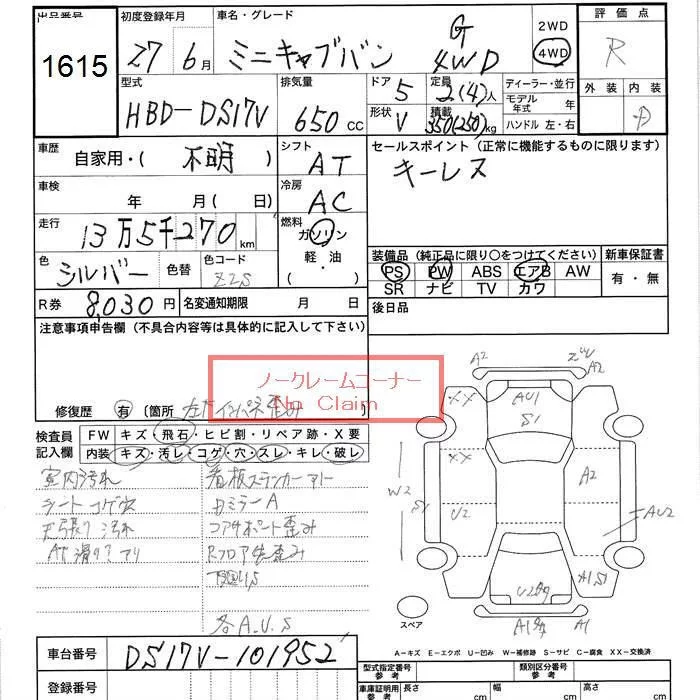 出品番号 初度登録年月 車名・グレード 評価点
1615 27年 6月 ミニキャブバン G 4WD 2WD 4WD R
型式 排気量 ドア 定員 ディーラー・並行 外装 内装
HBD-DS17V 650cc 5 2(4)人 モデル年式 年 D
形状 V 積載 350(250)kg ハンドル 左・右
車歴 自家用・( 不明 ) シフト AT セールスポイント (正常に機能するものに限ります)
キーレス
車検 年 月 ( 日) 冷房 AC
走行 13万5千270km 燃料 ガソリン
軽・油
( )
装備品 (純正品に限り〇をつけてください) 新車保証書
色 シルバー 色替 色コード PS PW ABS エアB AW 有・無
SR ナビ TV カワ
R券 8,030円 名変通知期限 月 日 後日品
注意事項申告欄 (不具合内容等は具体的に記入して下さい)
ノークレームコーナー
No Claim
修復歴 有 [箇所
検査員記入欄 FW キズ・飛石・ヒビ割・リペア跡・X要
内装 キズ・汚レ・コゲ・穴・スレ・キレ・破レ
室内汚れ
シートコゲ穴
天張り汚れ
コアサポート歪み
各A.U.S
A2 A2
XX AU1 S1
XX
W2 S1 U2 A2 AU2
A1S1
A1
スペア
A=キズ E=エクボ U=凹み W=補修跡 S=サビ C=腐食 XX=交換済
車台番号 DS17V-101952
型式指定番号 参考 類別区分番号 参考
登録番号 車庫証明用 参考 長さ cm 幅 cm 高さ cm